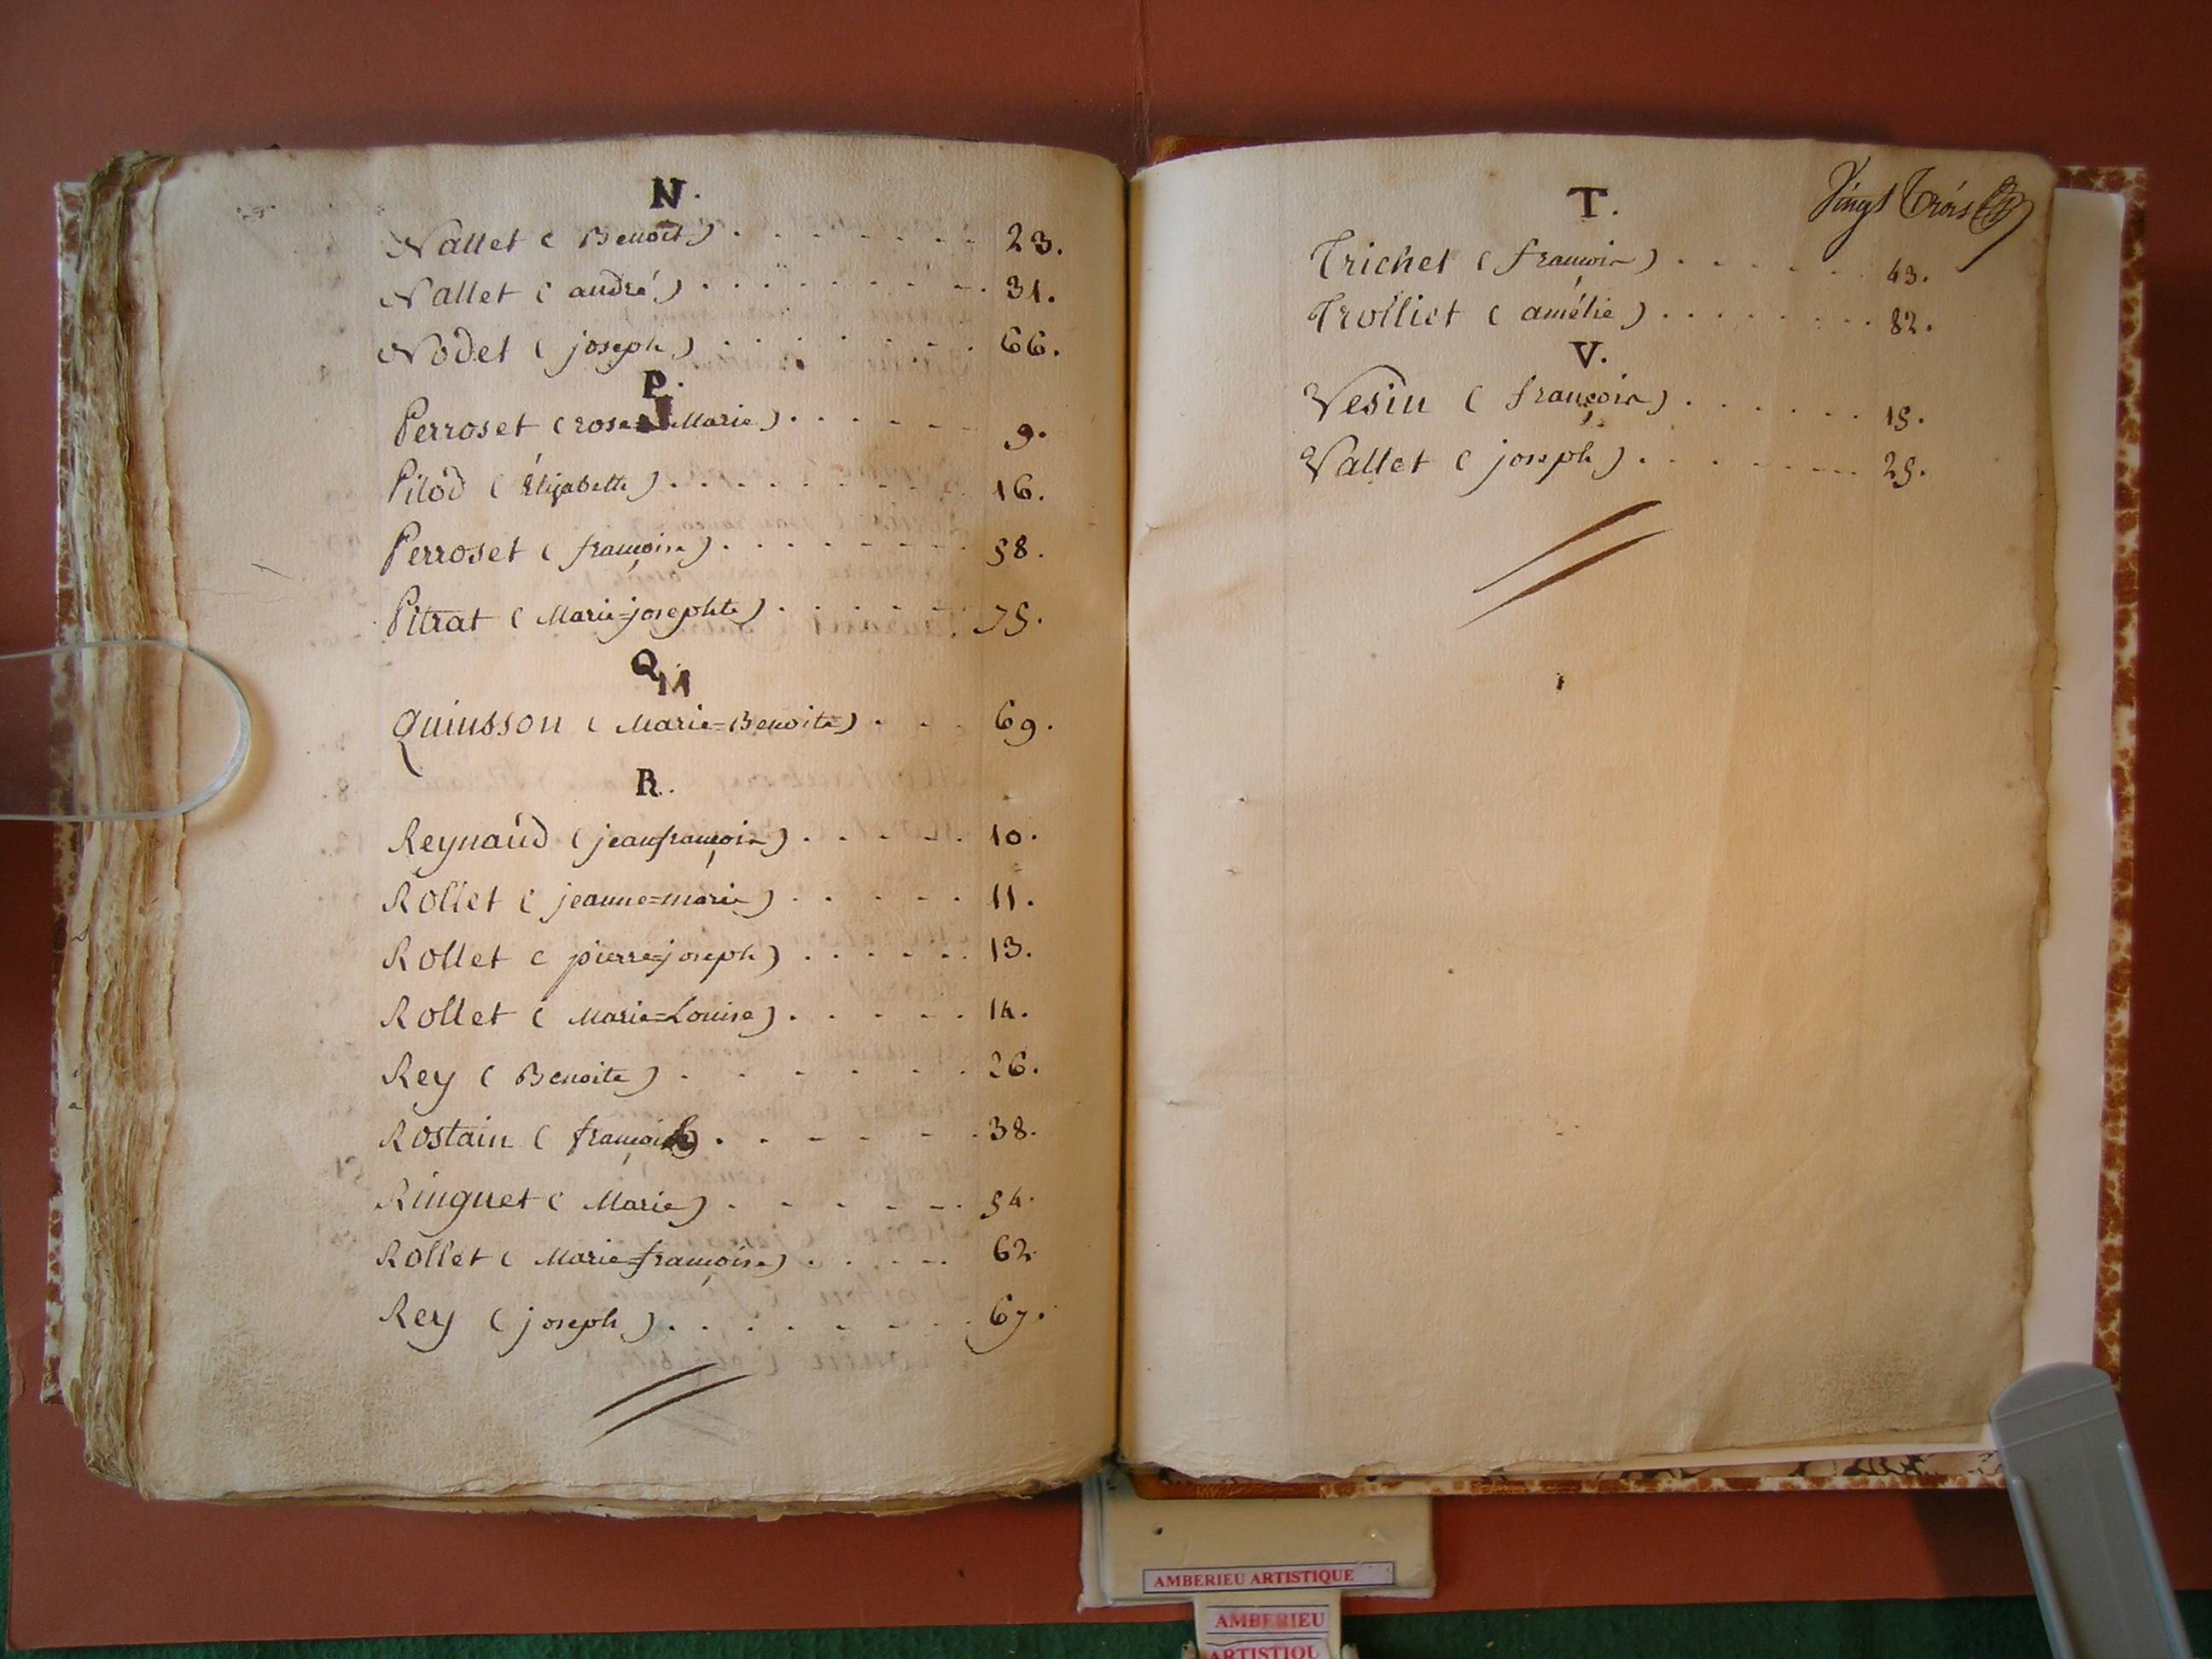 N.
Nallet ( Benoit ) . . . . . . . . 23.
Nallet ( andré ) . . . . . . . . . 31.
Nodet ( joseph ) . . . . . . . . 66.
P.
Perroset ( rose=Marie ) . . . . . . 9.
Pilod ( Élizabette ) . . . . . . . . 16.
Perroset ( françoise ) . . . . . . . . 58.
Pitrat ( Marie=josephte ) . . . . . . 75.
Q
M
Quinsson ( Marie=Benoite ) . . . 69.
R.
Reynaud ( jean françois ) . . . . . 10.
Rollet ( jeanne=marie ) . . . . . 11.
Rollet ( pierre=joseph ) . . . . . . 13.
Rollet ( Marie=Louise ) . . . . . 14.
Rey ( Benoite ) . . . . . . . 26.
Rostain ( ) . . . . . . 38.
Ringuet ( Marie ) . . . . . . 54.
Rollet ( Marie=françoise ) . . . . . 62
Rey ( joseph ) . . . . . . . . 67.
Vingt Trois
T.
Trichet ( françois ) . . . . . . 43.
Trolliet ( amélie ) . . . . . . . . 82.
V.
Vesin ( françois ) . . . . . . 15.
Vallet ( joseph ) . . . . . . . 25.
AMBERIEU ARTISTIQUE
AMBERIEU
ARTISTIQU